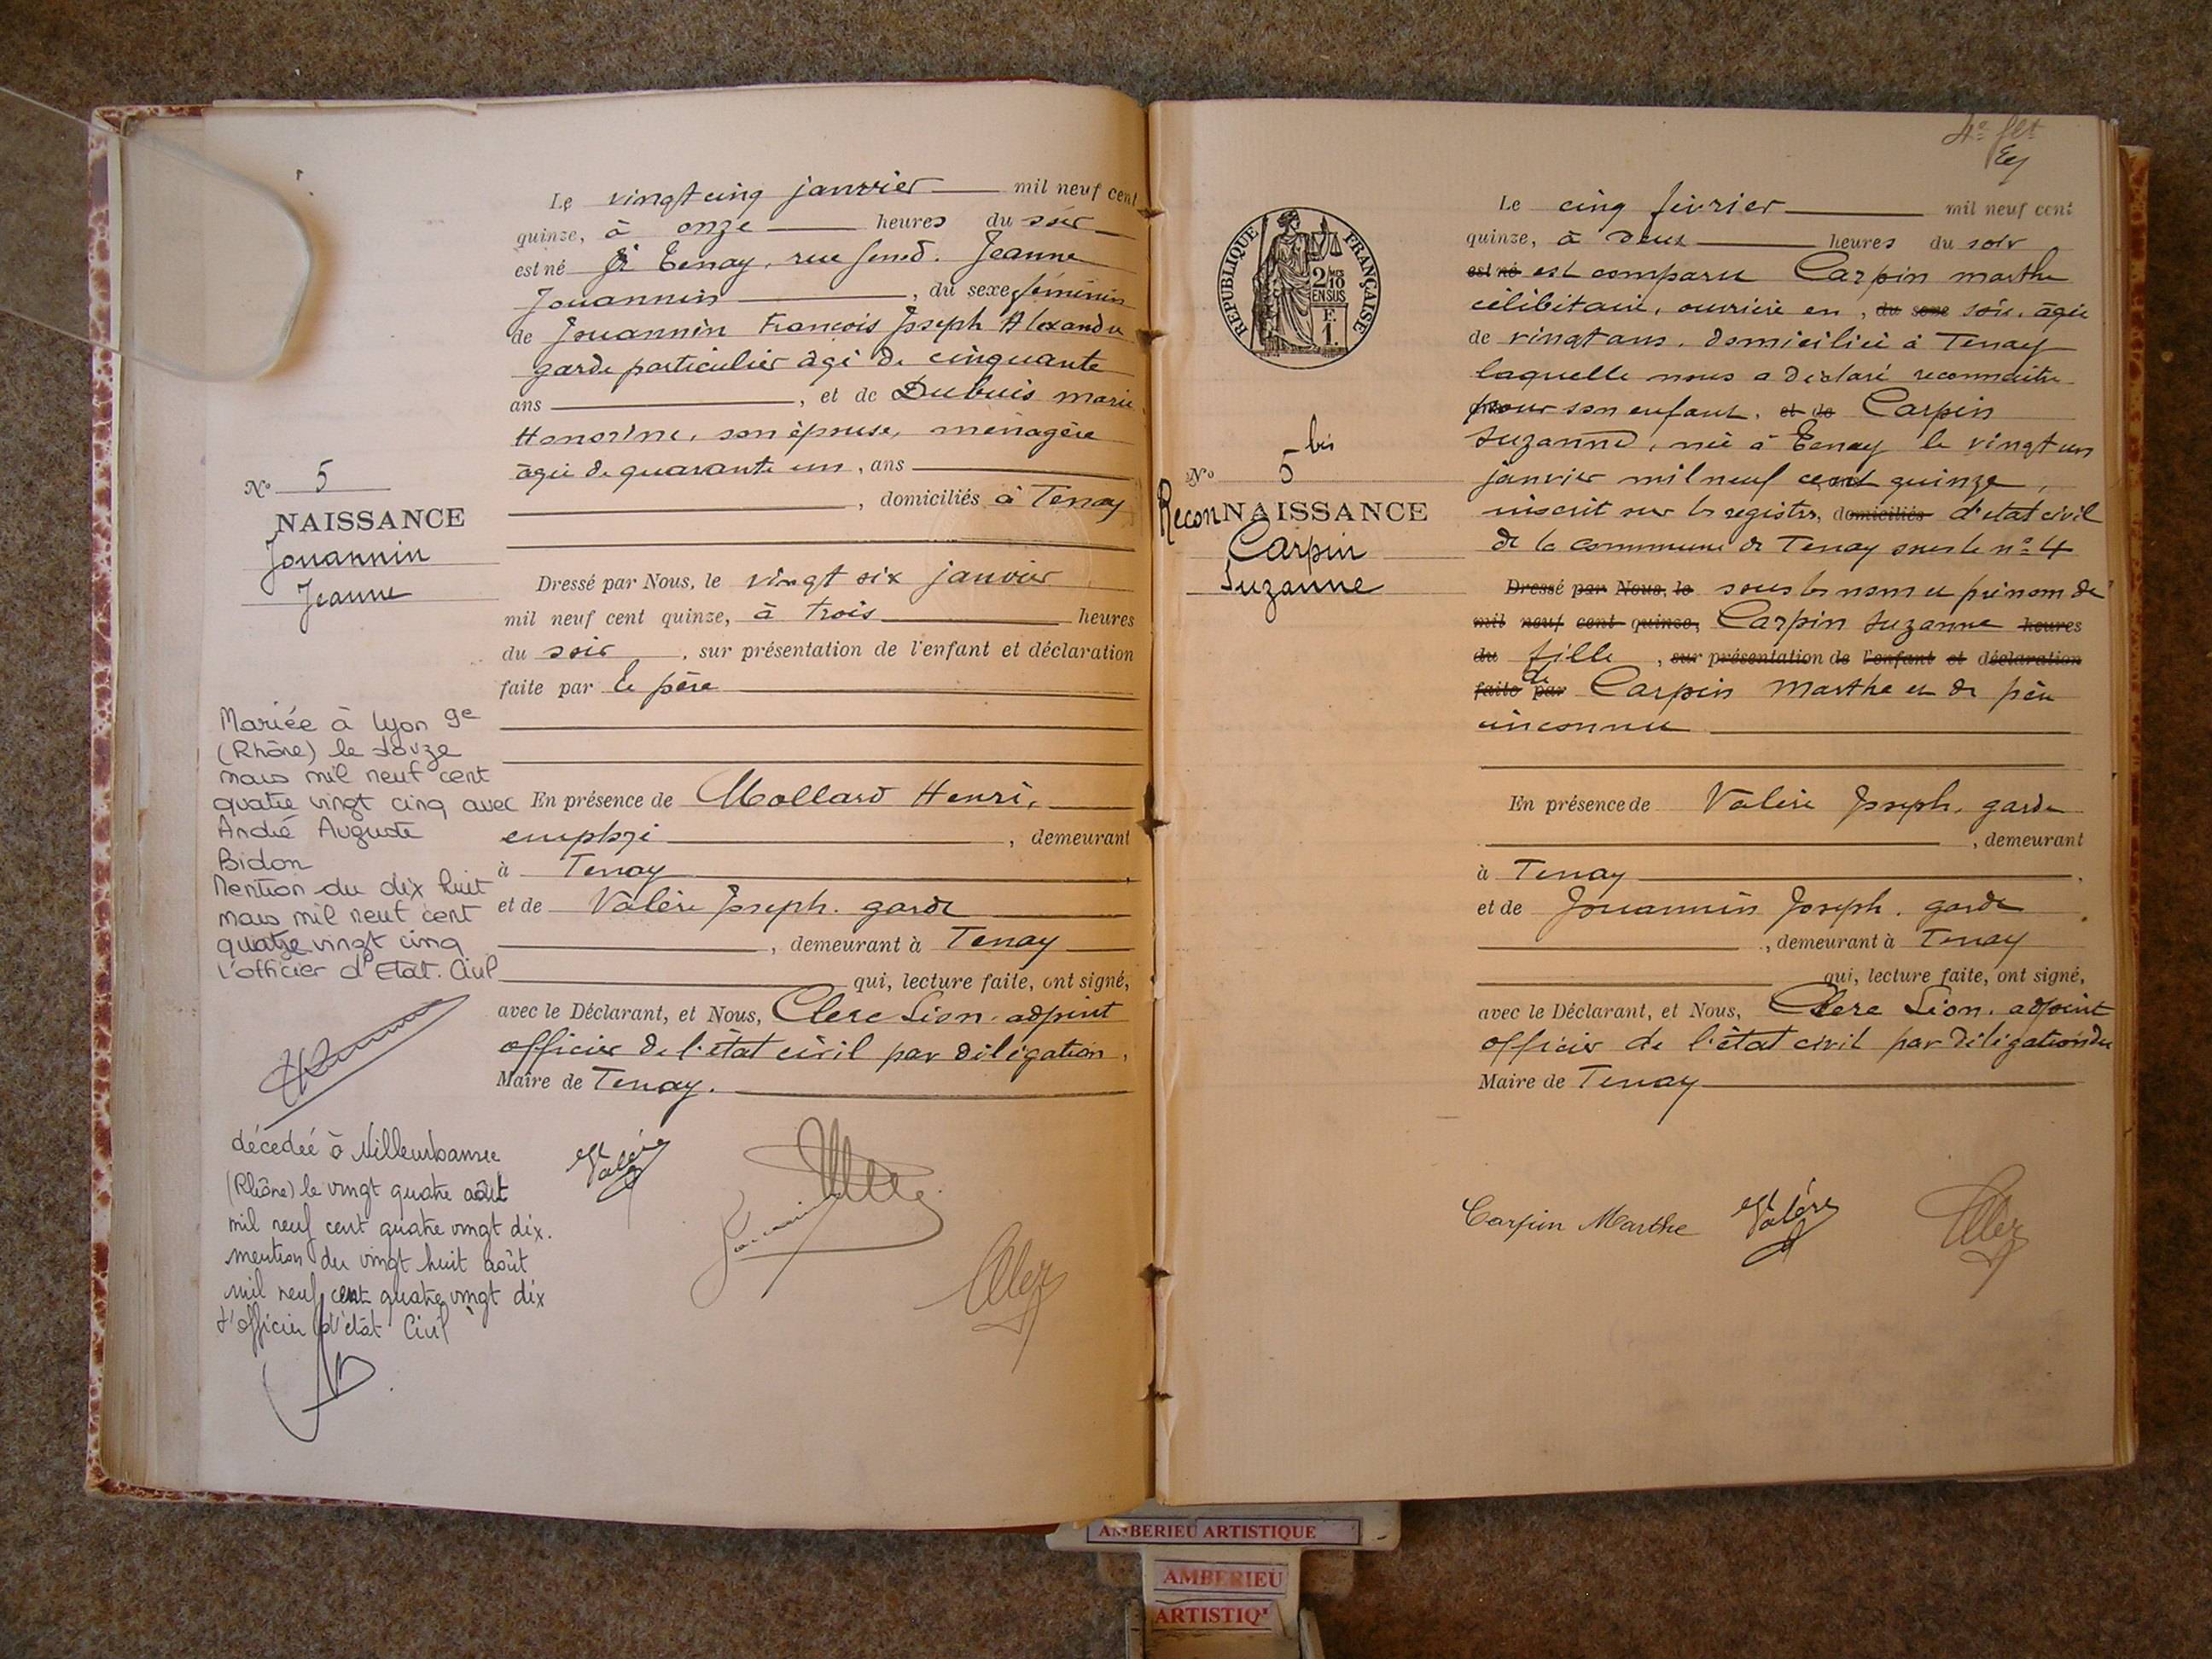 Le vingt cinq janvier mil neuf cent
quinze, à onze heures du soir
est né à Tenay, rue . Jeanne
Jouannin , du sexe féminin
de Jouannin François Joseph Alexandre
garde particulier âgé de cinquante
ans , et de Dubuis marie
Honorine, son épouse, ménagère
âgée de quarante un , ans
, domiciliés à Tenay
No 5
NAISSANCE
Jouannin
Jeanne
Dressé par Nous, le vingt six janvier
mil neuf cent quinze, à trois heures
du soir , sur présentation de l'enfant et déclaration
faite par le père
En présence de Mollard Henri,
employé , demeurant
à Tenay
et de Valère Joseph. garde
, demeurant à Tenay
qui, lecture faite, ont signé,
avec le Déclarant, et Nous, Clerc Léon. adjoint
officier de l'état civil par délégation,
Maire de Tenay.
Mariée à Lyon 9e
(Rhône) le douze
mars mil neuf cent
quatre vingt cinq avec
André Auguste
Bidon
Mention du dix huit
mars mil neuf cent
quatre vingt cinq
L'officier d'Etat. Civil
décedée à Villeurbanne
(Rhône) le vingt quatre août
mil neuf cent quatre vingt dix.
mention du vingt huit août
mil neuf cent quatre vingt dix
L'officier d'état Civil
Valère
4e flt
Le cinq février mil neuf cent
quinze, à deux heures du soir
est né est comparu Carpin marthe
célibataire, ouvrière en , du sexe soie. âgée
de vingt ans. domiciliée à Tenay
laquelle nous a déclaré reconnaître
pour son enfant. et de Carpin
Suzanne, née à Tenay le vingt un
janvier mil neuf cent quinze,
inscrit sur les registres, domiciliés d'état civil
de la commune de Tenay sous le no 4
Dressé par Nous, le sous les nom et prénom de
mil neuf cent quinze, Carpin Suzanne heures
du fille , sur présentation de l'enfant et déclaration
faite par de Carpin Marthe et de père
inconnu
REPUBLIQUE FRANÇAISE
2/10 EN SUS
F. 1.
No 5 bis
ReconNAISSANCE
Carpin
Suzanne
En présence de Valère Joseph. garde
, demeurant
à Tenay
et de Jouannin Joseph. garde
, demeurant à Tenay
qui, lecture faite, ont signé,
avec le Déclarant, et Nous, Clerc Léon. adjoint
officier de l'état civil par délégation du
Maire de Tenay
Carpin Marthe Valère
AMBERIEU ARTISTIQUE
AMBERIEU
ARTISTIQ